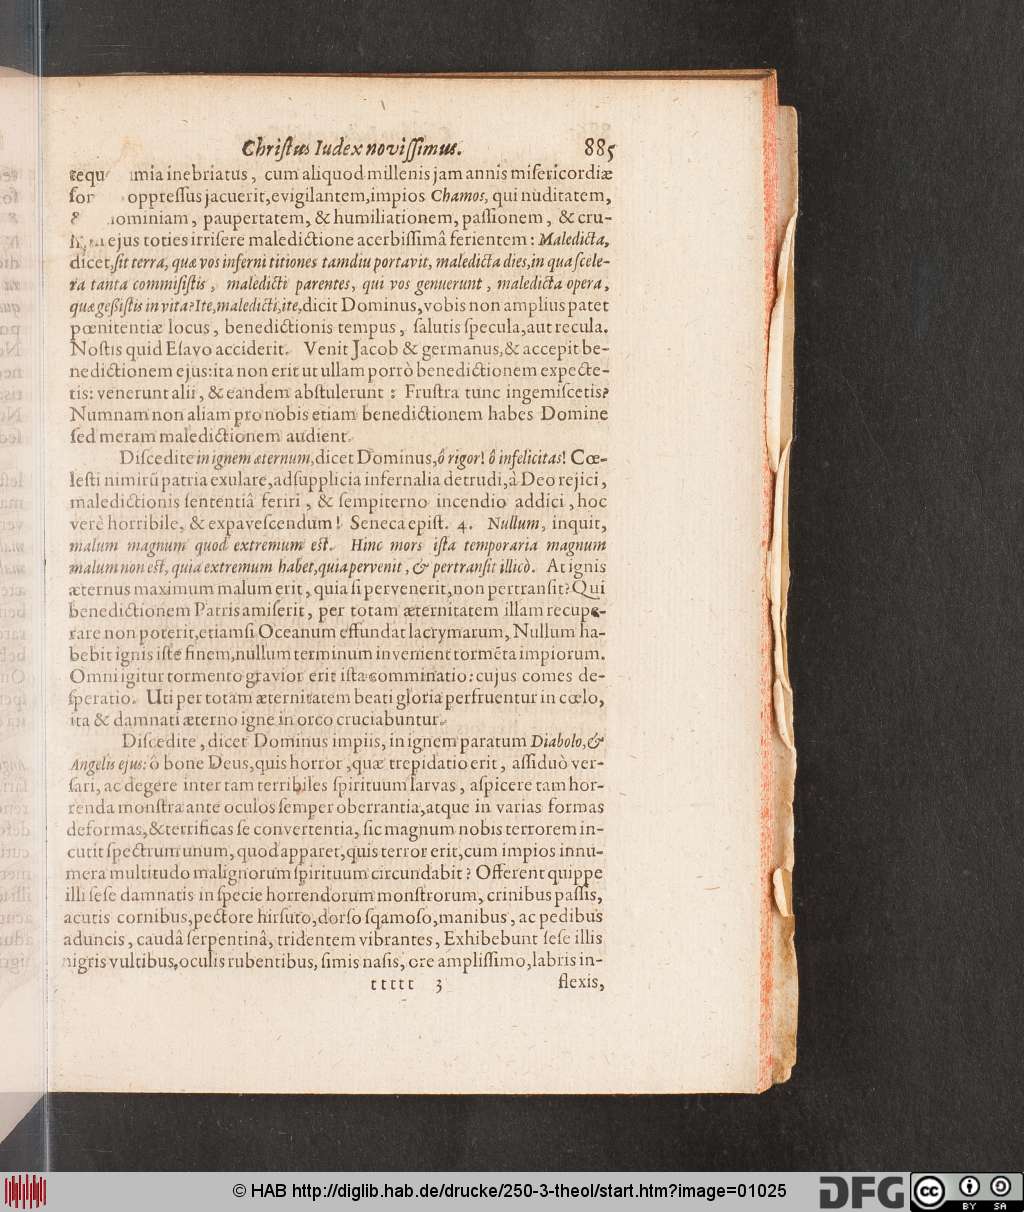 Chriſtus Iudex noviſſimus. 885
imia inebriatus, cum aliquod millenis jam annis miſericordiæ
oppreſſus jacuerit, evigilantem, impios Chamos, qui nuditatem,
nominiam, paupertatem, & humiliationem, paſſionem, & cru-
ejus toties irriſere maledictione acerbiſſimâ ferientem: Maledicta,
dicet, ſit terra, quæ vos inferni titiones tamdiu portavit, maledicta dies, in qua ſcele-
ra tanta commiſiſtis, maledicti parentes, qui vos genuerunt, maledicta opera,
quæ geßiſtis in vita? Ite, maledicti, ite, dicit Dominus, vobis non amplius patet
pœnitentiæ locus, benedictionis tempus, ſalutis ſpecula, aut recula.
Noſtis quid Eſavo acciderit. Venit Jacob & germanus, & accepit be-
nedictionem ejus: ita non erit ut ullam porrò benedictionem expecte-
tis: venerunt alii, & eandem abſtulerunt: Fruſtra tunc ingemiſcetis?
Numnam non aliam pro nobis etiam benedictionem habes Domine
ſed meram maledictionem audient.
Diſcedite in ignem æternum, dicet Dominus, ô rigor! ô infelicitas! Cœ-
leſti nimirũ patria exulare, ad ſupplicia infernalia detrudi, à Deo rejici,
maledictionis ſententiâ feriri, & ſempiterno incendio addici, hoc
verè horribile, & expaveſcendum! Seneca epiſt. 4. Nullum, inquit,
malum magnum quod extremum eſt. Hinc mors iſta temporaria magnum
malum non eſt, quia extremum habet, quia pervenit, & pertranſit illicò. At ignis
æternus maximum malum erit, quia ſi pervenerit, non pertranſit? Qui
benedictionem Patris amiſerit, per totam æternitatem illam recupe-
rare non poterit, etiamſi Oceanum effundat lacrymarum, Nullum ha-
bebit ignis iſte finem, nullum terminum invenient tormẽta impiorum.
Omni igitur tormento gravior erit iſta comminatio: cujus comes de-
ſperatio. Uti per totam æternitatem beati gloria perfruentur in cœlo,
ita & damnati æterno igne in orco cruciabuntur.
Diſcedite, dicet Dominus impiis, in ignem paratum Diabolo, &
Angelis ejus: ô bone Deus, quis horror, quæ trepidatio erit, aſſiduò ver-
ſari, ac degere inter tam terribiles ſpirituum larvas, aſpicere tam hor-
renda monſtra ante oculos ſemper oberrantia, atque in varias formas
deformas, & terrificas ſe convertentia, ſic magnum nobis terrorem in-
cutit ſpectrum unum, quod apparet, quis terror erit, cum impios innu-
mera multitudo malignorum ſpirituum circundabit? Offerent quippe
illi ſeſe damnatis in ſpecie horrendorum monſtrorum, crinibus paſſis,
acutis cornibus, pectore hirſuto, dorſo ſqamoſo, manibus, ac pedibus
aduncis, caudâ ſerpentinâ, tridentem vibrantes, Exhibebunt ſeſe illis
nigris vultibus, oculis rubentibus, ſimis naſis, ore ampliſſimo, labris in-
ttttt 3 flexis,
© HAB http://diglib.hab.de/drucke/250-3-theol/start.htm?image=01025
DFG
cc BY SA